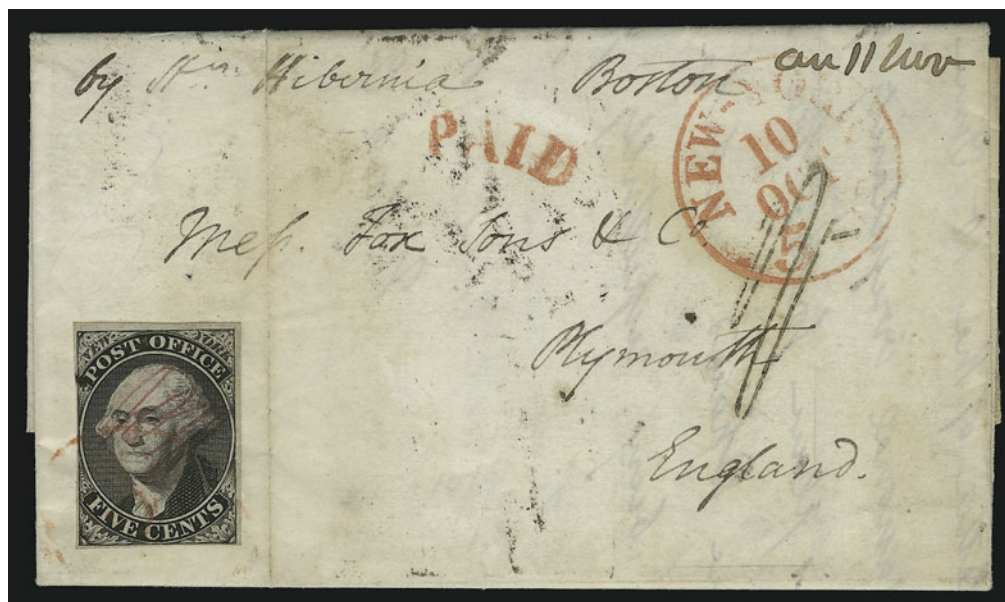 by Stm Hibernia Boston
PAID
NEW-YORK
10
OC
5
Mess. Fox Sons & Co.
Plymouth
England.
NEW YORK
POST OFFICE
FIVE CENTS